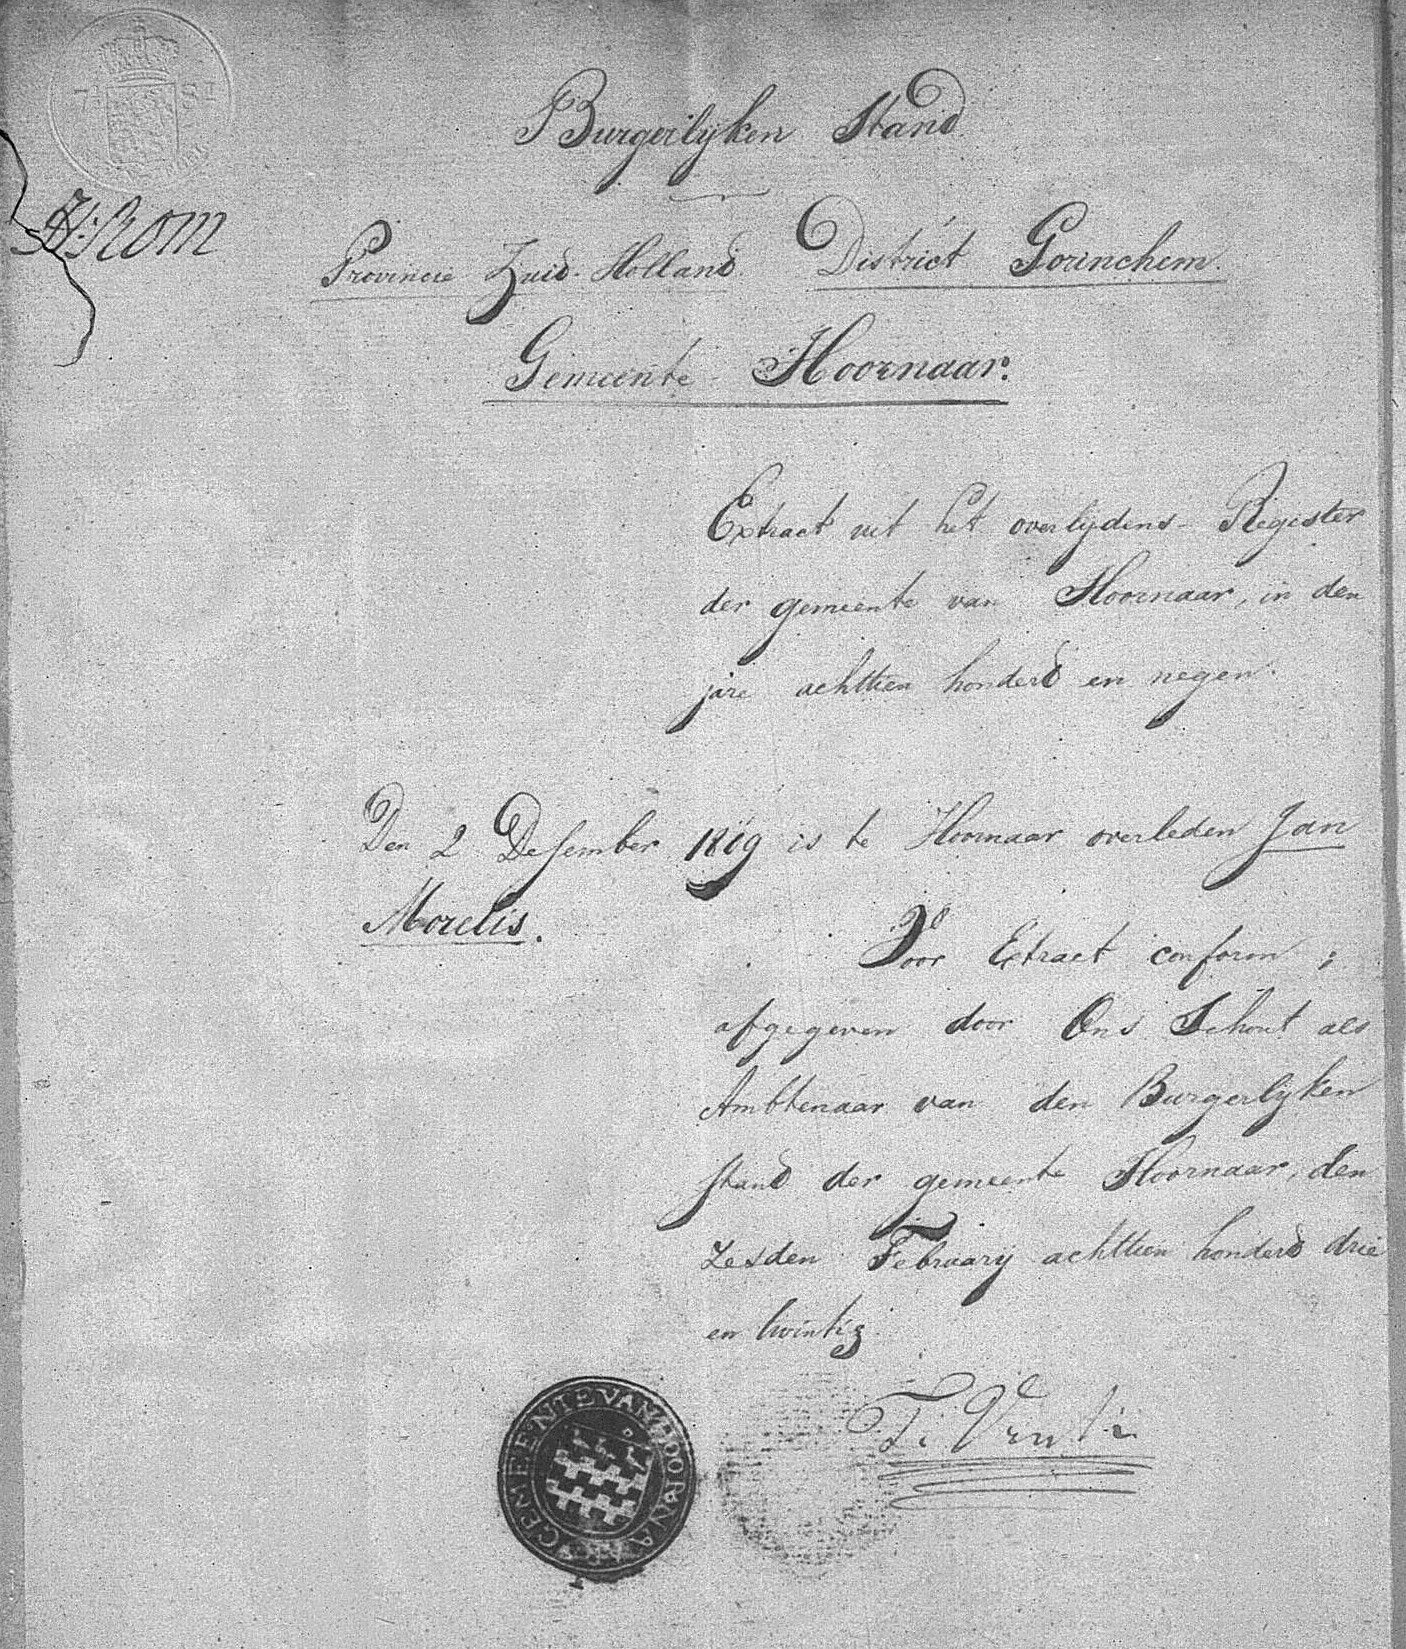 H: Kom
Burgerlijken Stand
Provincie Zuid-Holland District Gorinchem.
Gemeente Hoornaar.
Extract uit het overlijdens-Register
der gemeente van Hoornaar, in den
jare achttien honderd en negen.
Den 2 Desember 1809 is te Hoornaar overleden Jan
Morelis.
Voor Extract conform;
afgegeven door Ons Schout als
Ambtenaar van den Burgerlijken
stand der gemeente Hoornaar, den
zesden Februarij achttien honderd drie
en twintig.
GEMEENTE VAN HOORNAAR